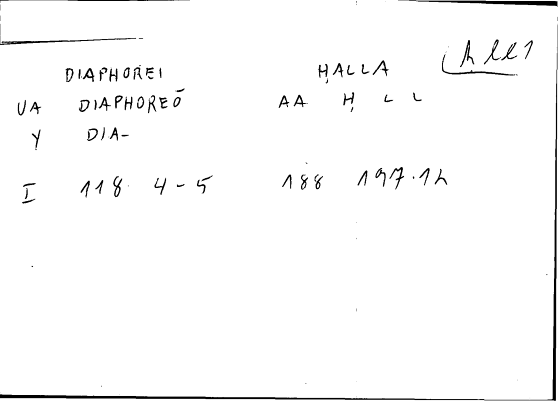 ḥll1
DIAPHOREI ḤALLA
VA DIAPHOREŌ AA Ḥ L L
Y DIA-
I 118 4-5 188 197.12